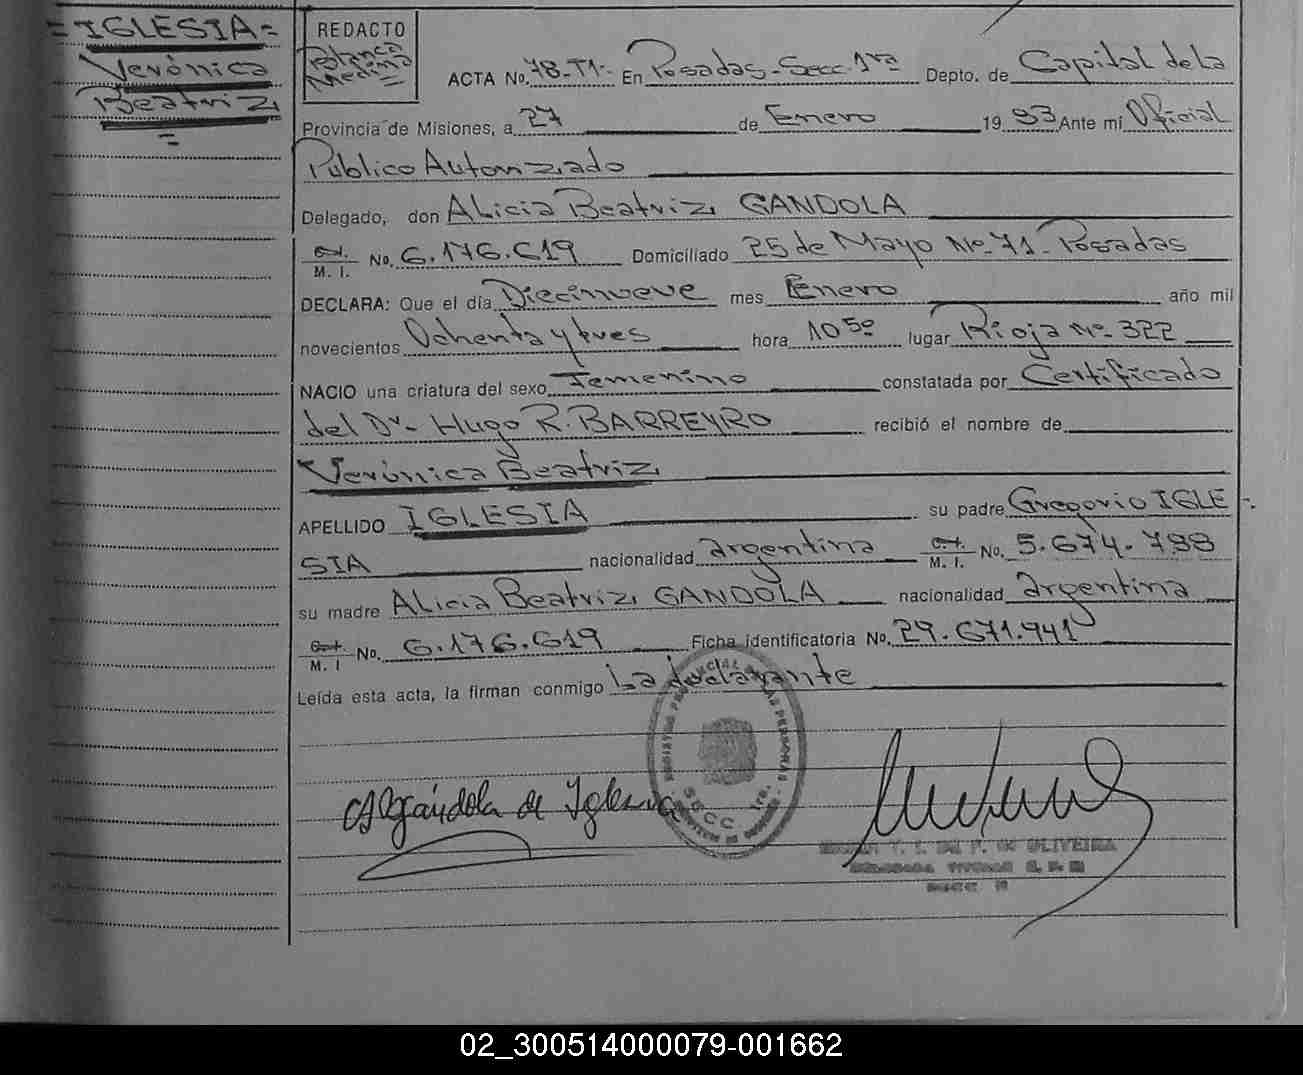 =IGLESIA=
Verónica
Beatriz
=
REDACTO
Medina
ACTA No. 78-T1- En Posadas-Secc. 1ra Depto. de Capital de la
Provincia de Misiones, a 27 de Enero 1983 Ante mí Oficial
Público Autorizado
Delegado, don Alicia Beatriz GANDOLA
M. I. No. 6.176.619 Domiciliado 25 de Mayo Nº-71-Posadas
DECLARA: Que el día Diecinueve mes Enero año mil
novecientos Ochenta y tres hora 10 50 lugar Rioja Nº-322
NACIO una criatura del sexo Femenino constatada por Certificado
del Dr- Hugo R. BARREYRO recibió el nombre de
Verónica Beatriz
APELLIDO IGLESIA su padre Gregorio IGLE-
SIA nacionalidad argentina M. I. No. 5.674.798
su madre Alicia Beatriz GANDOLA nacionalidad argentina
M. I No. 6.176.619 Ficha identificatoria No. 29.671.941
Leída esta acta, la firman conmigo La declarante
REGISTRO PROVINCIAL DE LAS PERSONAS
SECC. 1ra.
AGándola de Iglesia
OLIVEIRA
02_300514000079-001662